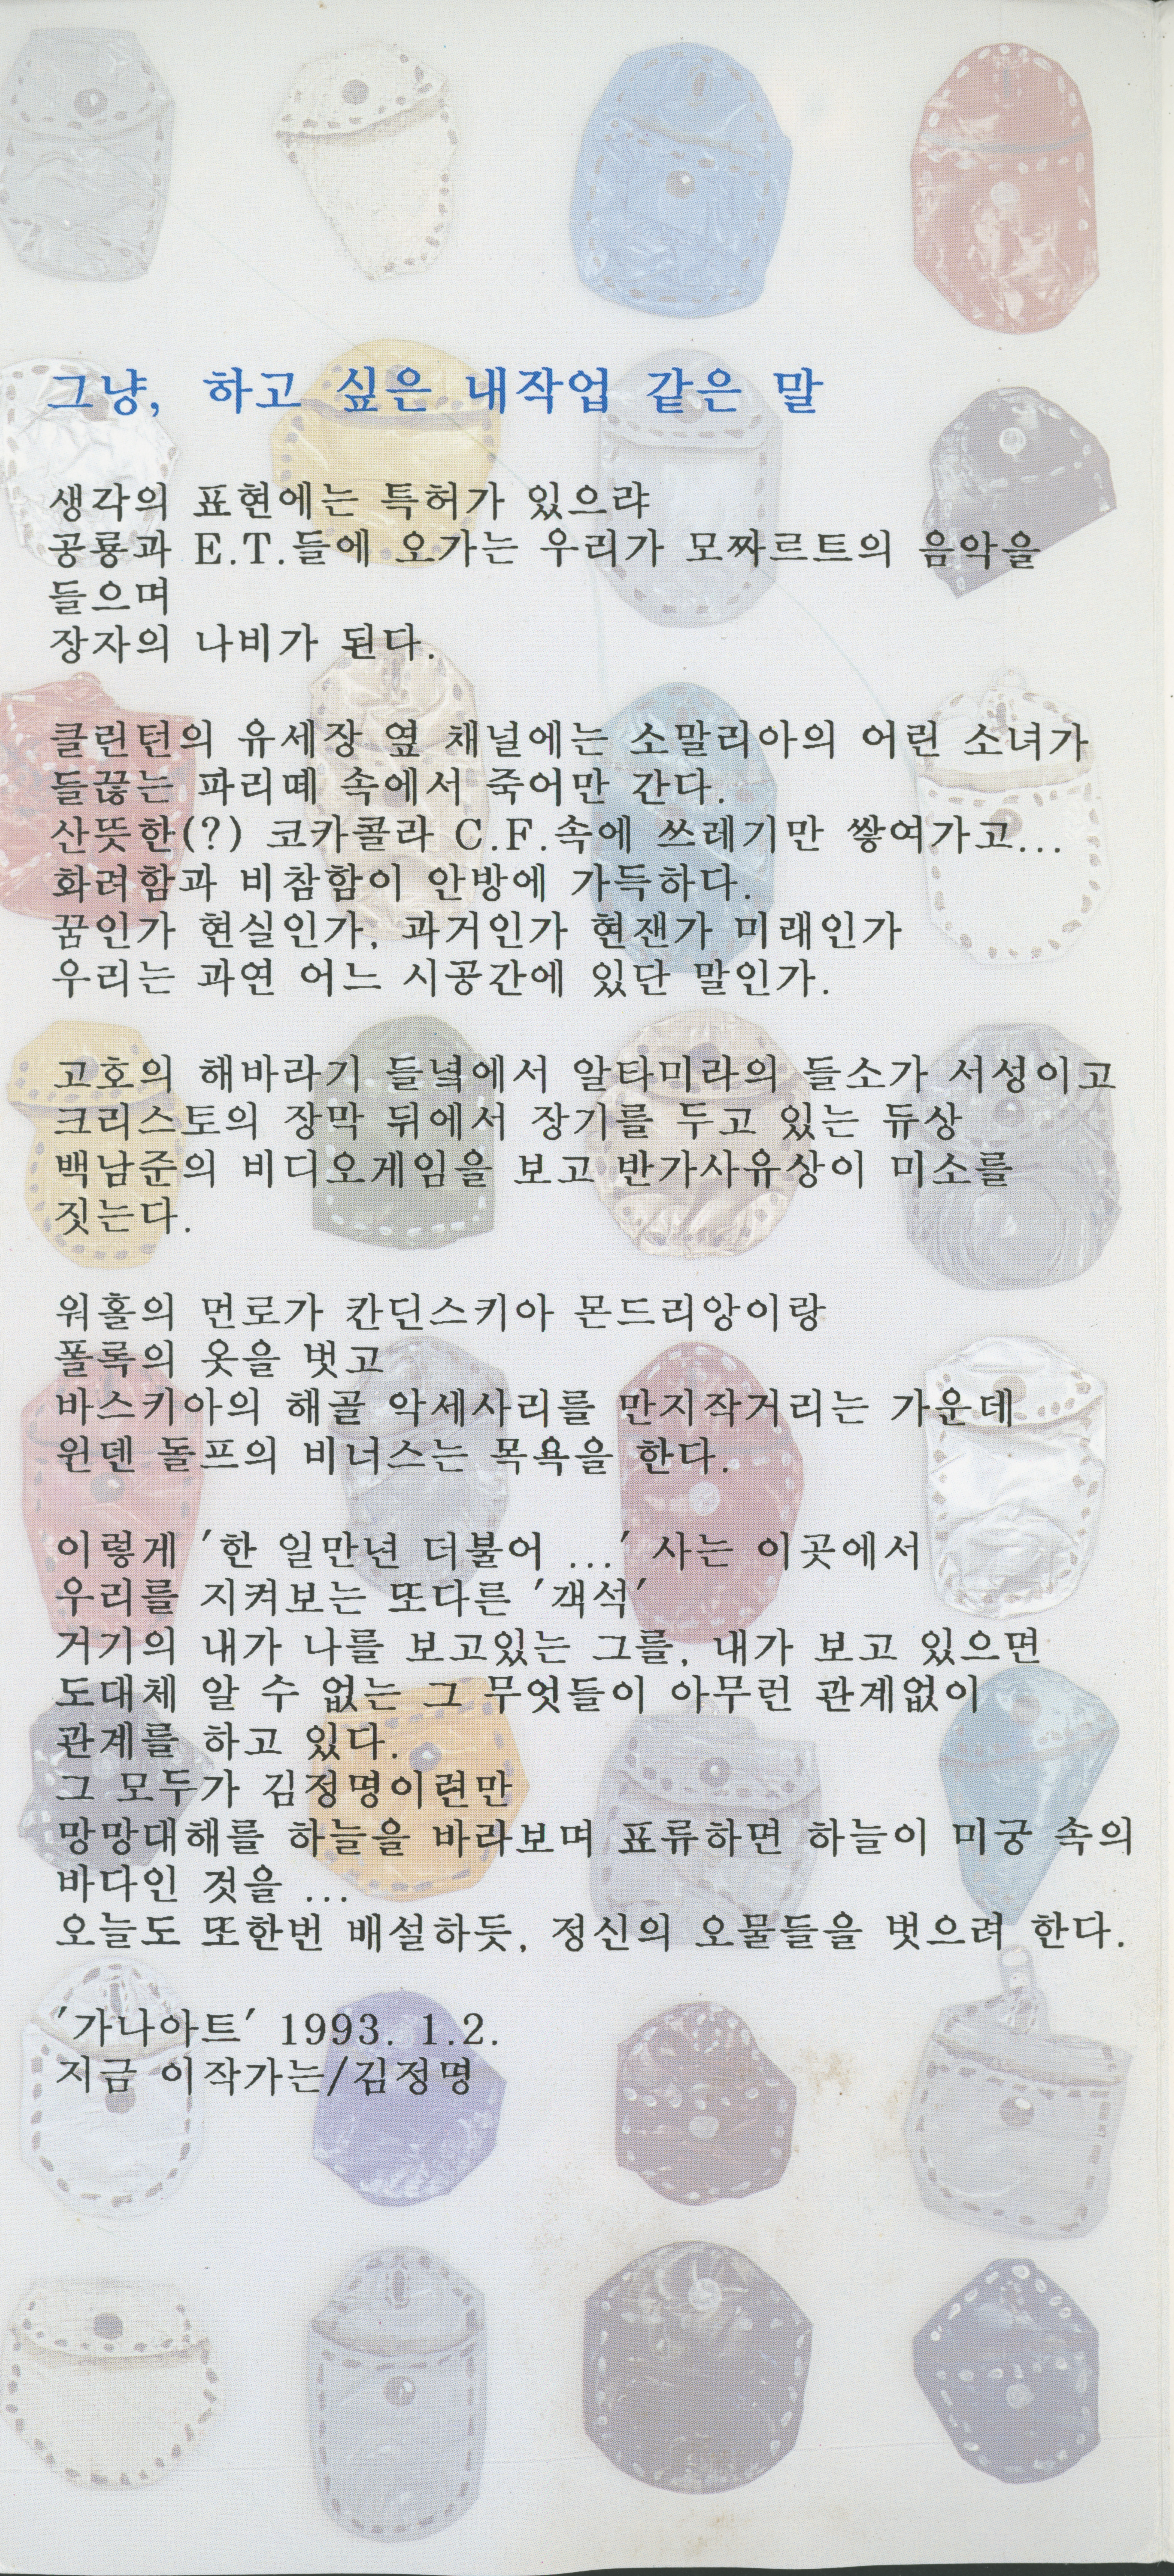 그냥, 하고 싶은 내작업 같은 말
생각의 표현에는 특허가 있으랴
공룡과 E.T.들에 오가는 우리가 모짜르트의 음악을
들으며
장자의 나비가 된다.
클린턴의 유세장 옆 채널에는 소말리아의 어린 소녀가
들끊는 파리떼 속에서 죽어만 간다.
산뜻한(?) 코카콜라 C.F.속에 쓰레기만 쌓여가고...
화려함과 비참함이 안방에 가득하다.
꿈인가 현실인가, 과거인가 현잰가 미래인가
우리는 과연 어느 시공간에 있단 말인가.
고호의 해바라기 들녘에서 알타미라의 들소가 서성이고
크리스토의 장막 뒤에서 장기를 두고 있는 듀상
백남준의 비디오게임을 보고 반가사유상이 미소를
짓는다.
워홀의 먼로가 칸딘스키아 몬드리앙이랑
폴록의 옷을 벗고
바스키아의 해골 악세사리를 만지작거리는 가운데
윈덴 돌프의 비너스는 목욕을 한다.
이렇게 '한 일만년 더불어 ...' 사는 이곳에서
우리를 지켜보는 또다른 '객석'
거기의 내가 나를 보고있는 그를, 내가 보고 있으면
도대체 알 수 없는 그 무엇들이 아무런 관계없이
관계를 하고 있다.
그 모두가 김정명이련만
망망대해를 하늘을 바라보며 표류하면 하늘이 미궁 속의
바다인 것을 ...
오늘도 또한번 배설하듯, 정신의 오물들을 벗으려 한다.
'가나아트' 1993. 1.2.
지금 이작가는/김정명